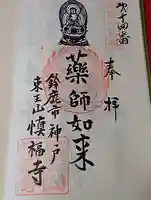 第十四番
奉拝
薬師如来
鈴鹿市神戸
東王山慎福寺